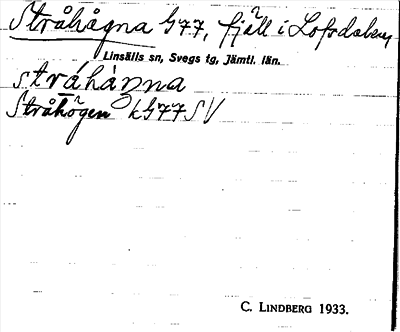 Stråhågna G77, fjäll i Lofsdalen,
Linsälls sn, Svegs tg, Jämtl. län.
stráhàŋna
Stråhögen LG77SV
C. LINDBERG 1933.